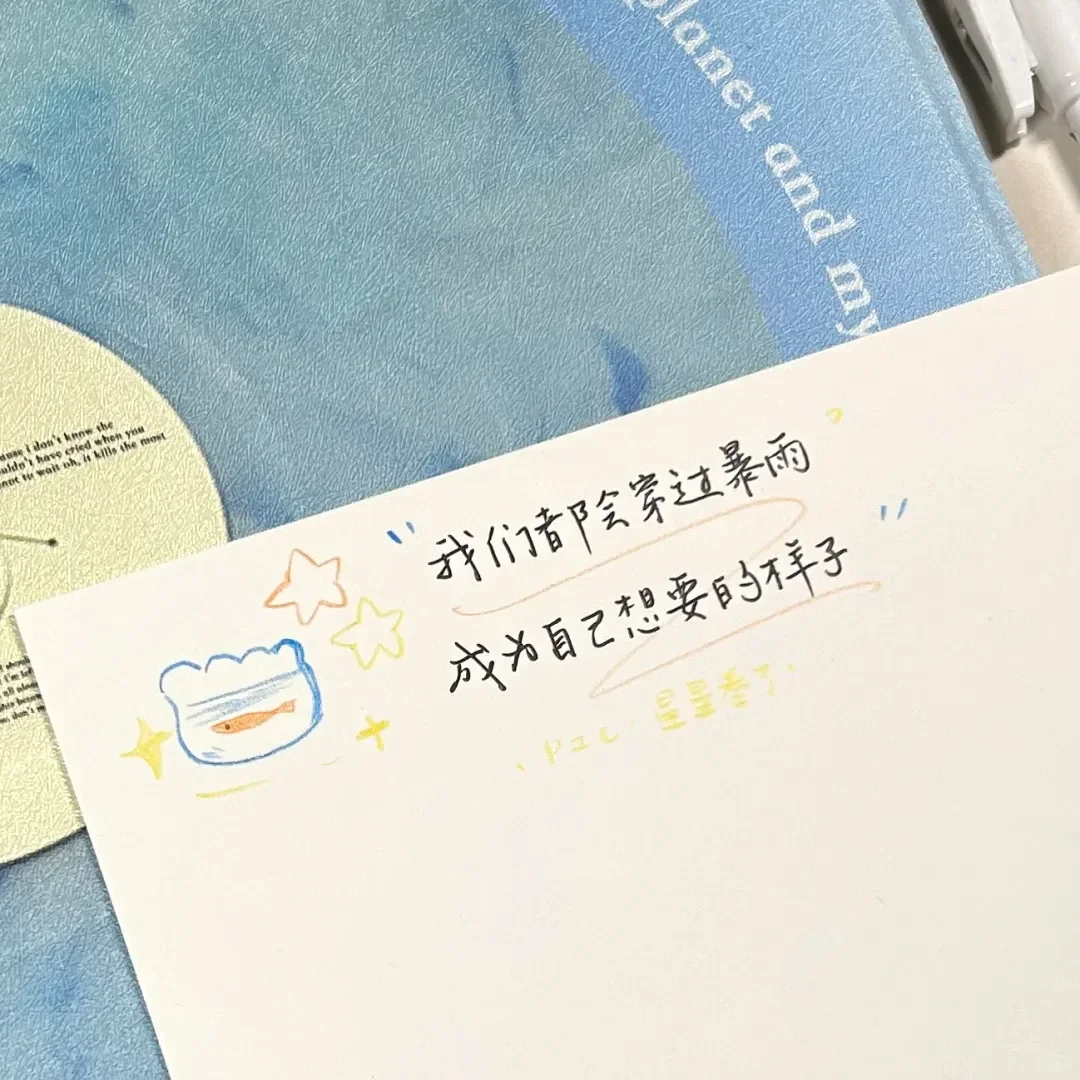 planet and my
ause i don't know the
uldn't have cried when you
to wait oh, it kills the most
“我们都会穿过暴雨
成为自己想要的样子”